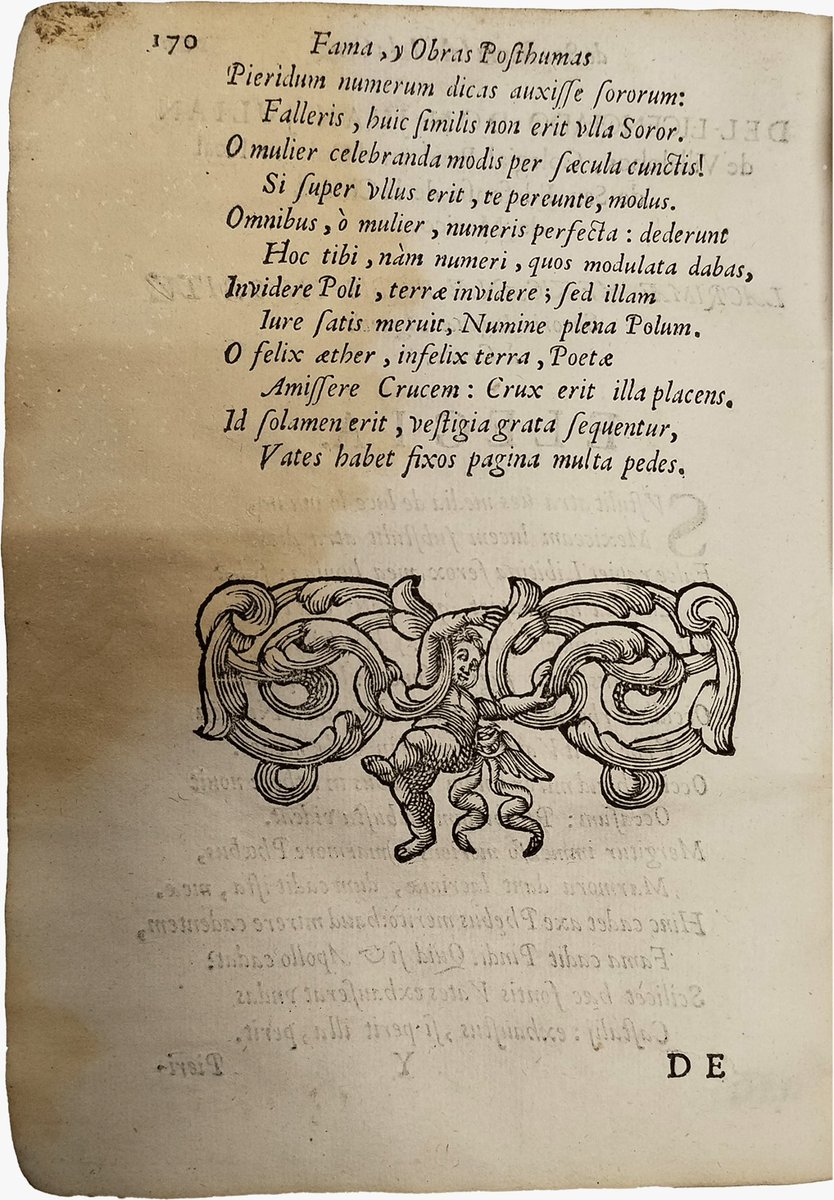 170 Fama, y Obras Posthumas
Pieridum numerum dicas auxiſſe ſororum:
Falleris, huic ſimilis non erit vlla Soror.
O mulier celebranda modis per ſæcula cunctis!
Si ſuper vllus erit, te pereunte, modus.
Omnibus, ò mulier, numeris perfecta: dederunt
Hoc tibi, nàm numeri, quos modulata dabas,
Invidere Poli, terræ invidere; ſed illam
Iure ſatis meruit, Numine plena Polum.
O felix æther, infelix terra, Poetæ
Amiſſere Crucem: Crux erit illa placens.
Id ſolamen erit, veſtigia grata ſequentur,
Vates habet fixos pagina multa pedes.
DE